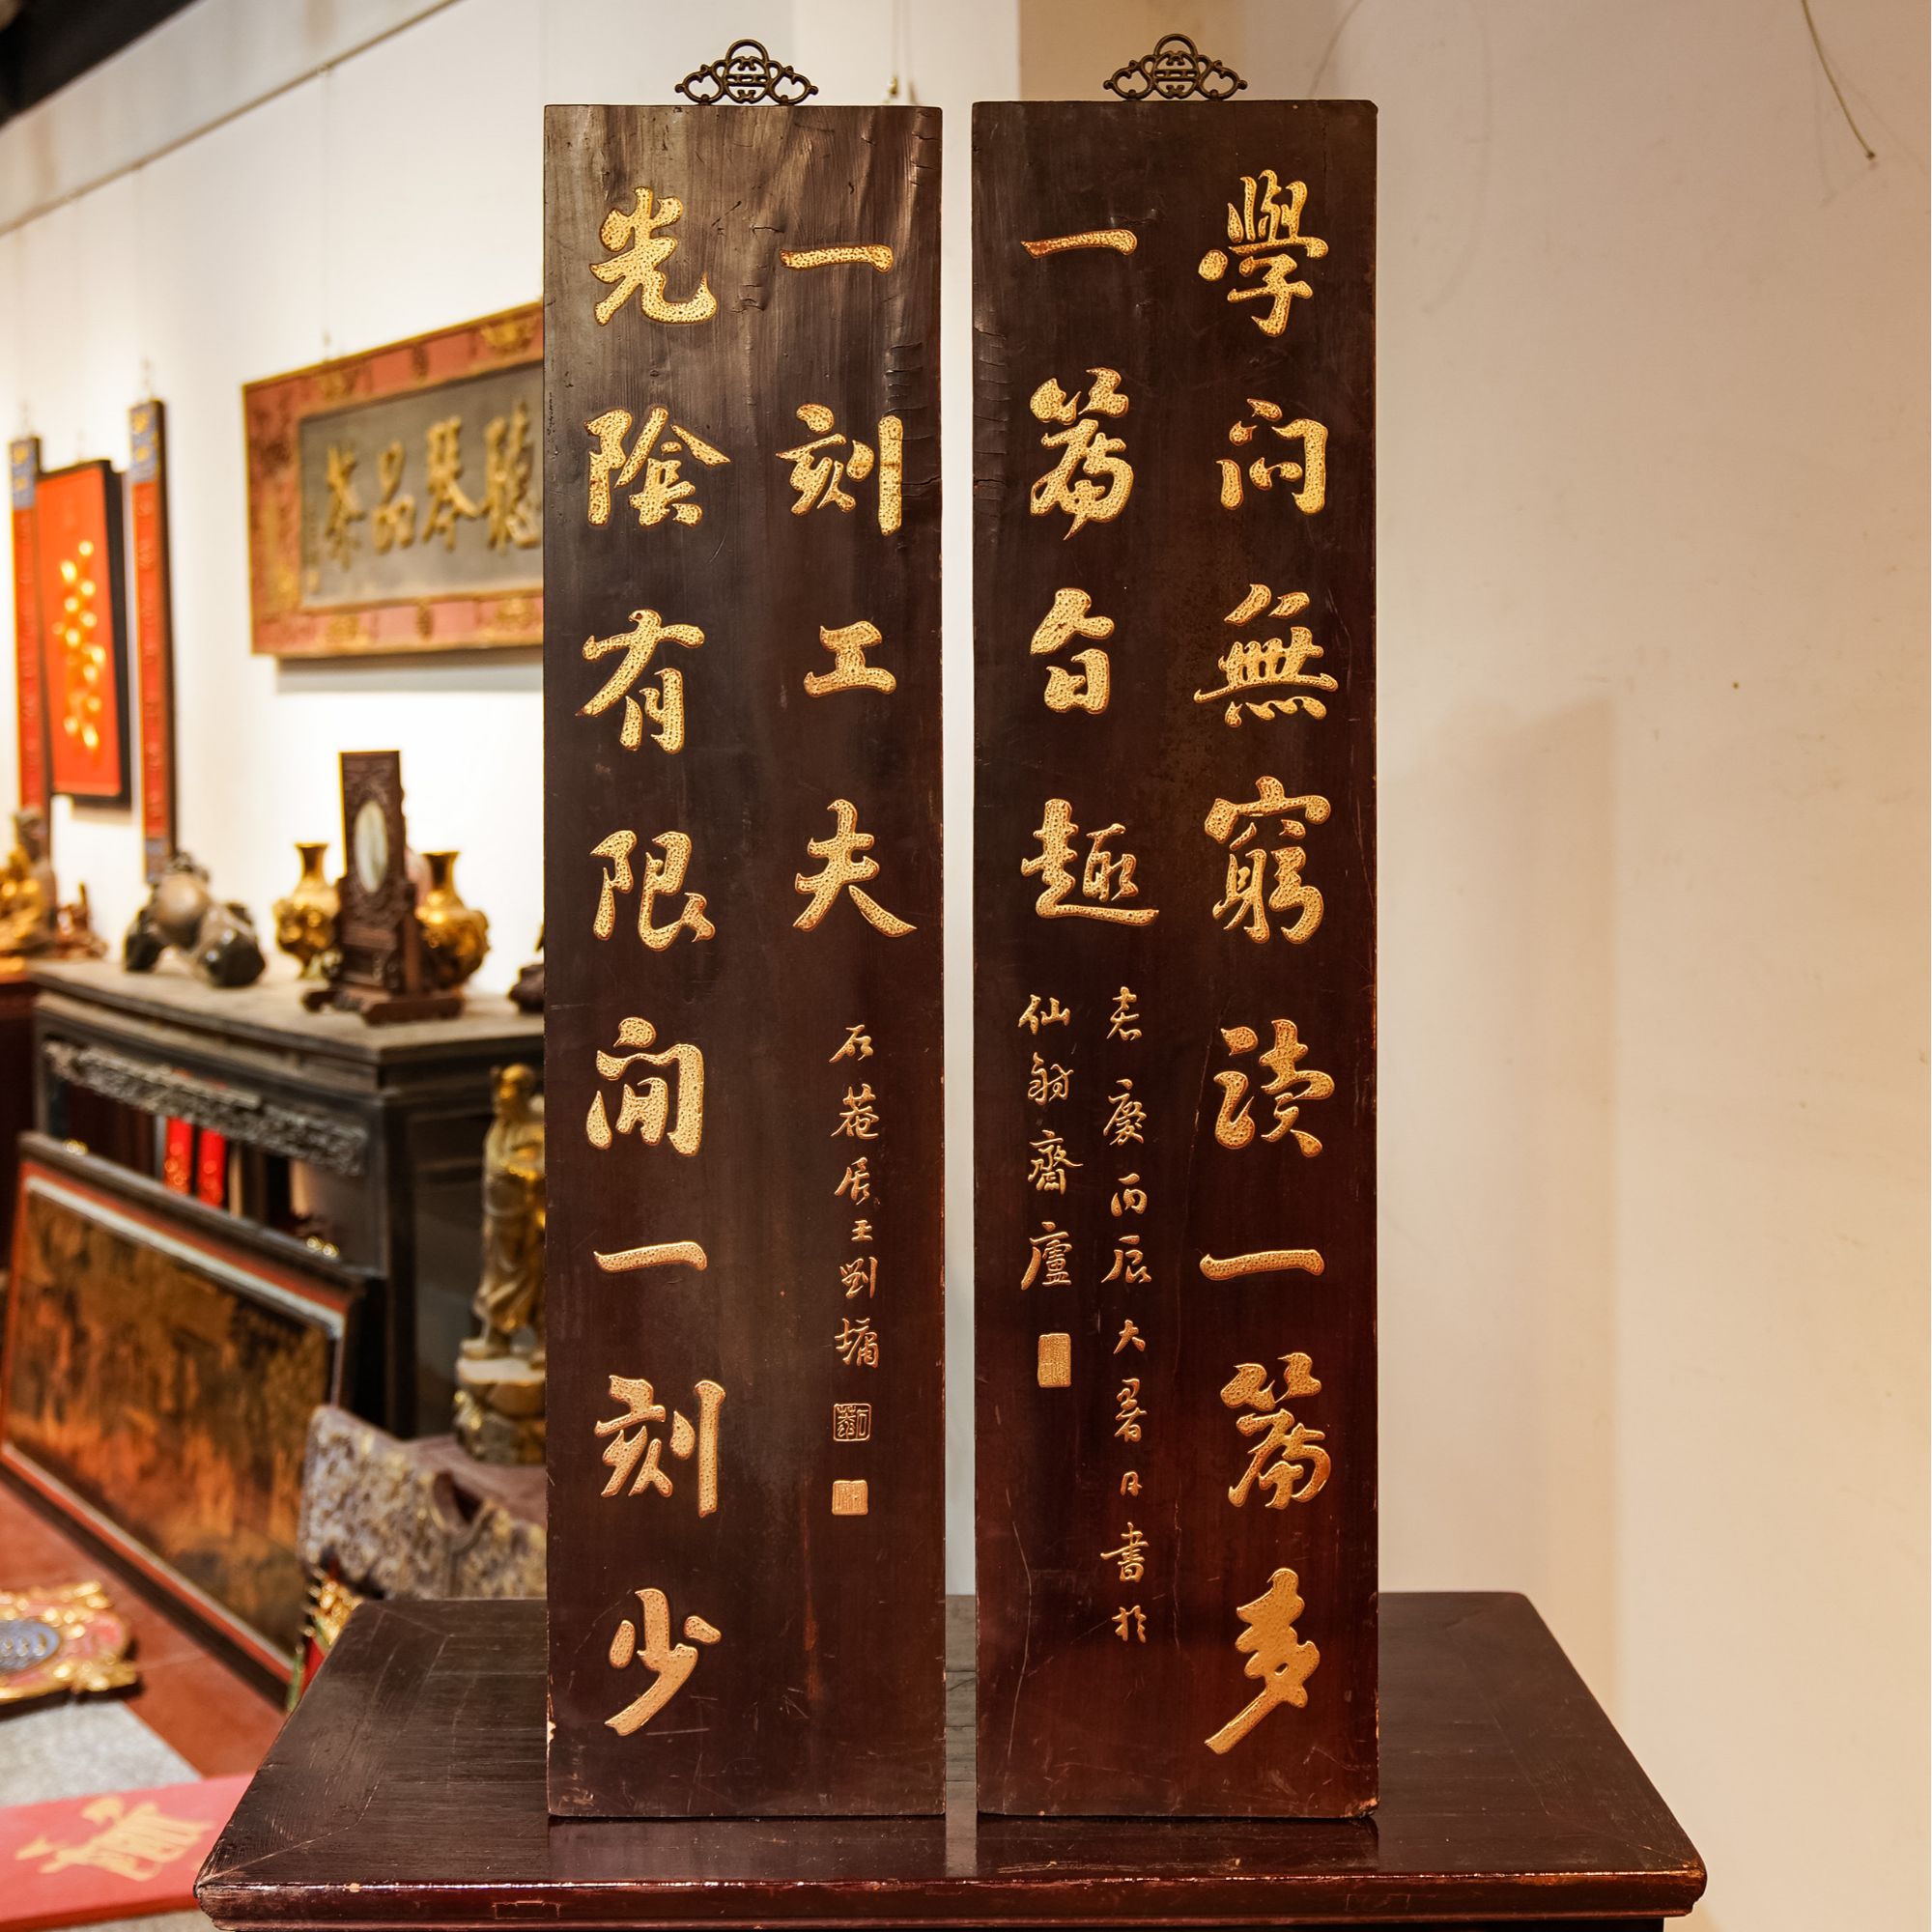 學問無窮讀一篇多
一篇旨趣
嘉慶丙辰大暑日書於
仙齋廬
光陰有限閒一刻少
一刻工夫
石菴居士劉墉
聽琴品茶